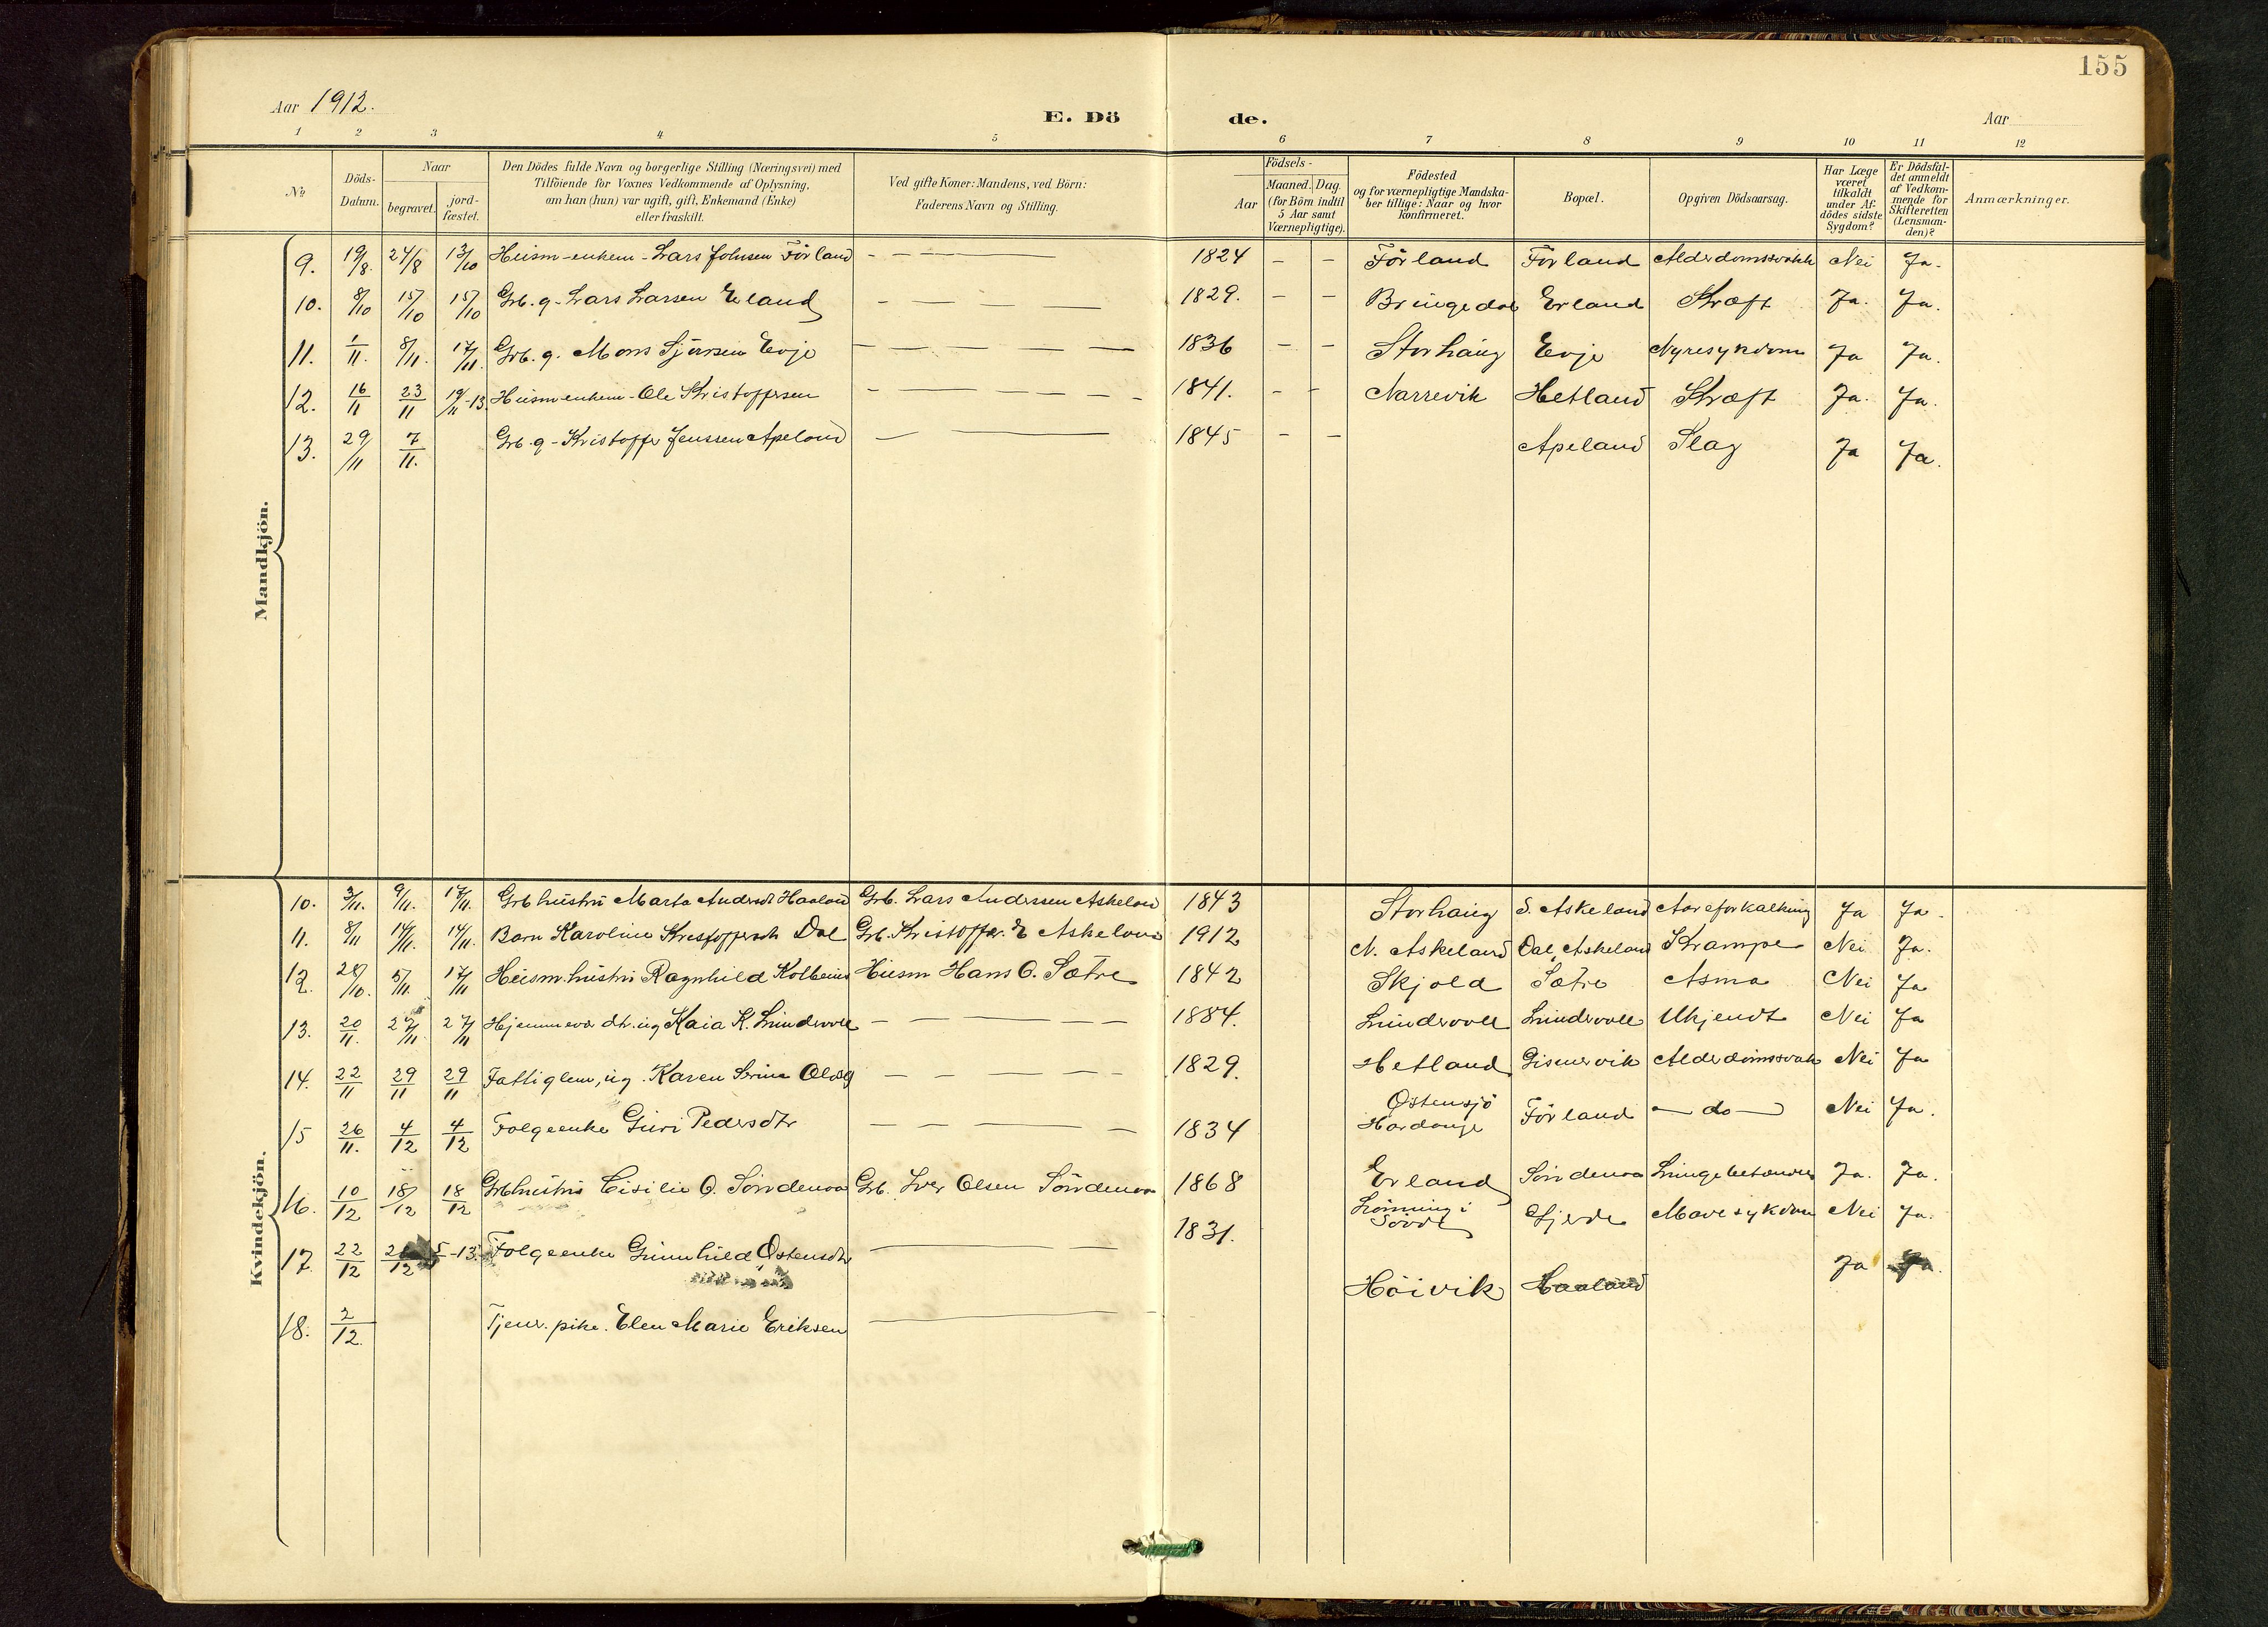 155
Aar 1912.
E. Dö de.
Aar
1 2 3 4 5 6 7 8 9 10 11 12
No
Döds-Datum.
Naar
begravet.
jord-fæstet.
Den Dödes fulde Navn og borgerlige Stilling (Næringsvei) med
Tilföiende for Voxnes Vedkommende af Oplysning,
om han (hun) var ugift, gift, Enkemand (Enke)
eller fraskilt.
Ved gifte Koner: Mandens, ved Börn:
Faderens Navn og Stilling.
Födsels-
Aar
Maaned. Dag.
(for Börn indtil
5 Aar samt
Værnepligtige).
Födested
og for værnepligtige Mandska-
ber tillige: Naar og hvor
konfirmeret.
Bopæl.
Opgiven Dödsaarsag.
Har Læge
været
tilkaldt
under Af-
dödes sidste
Sygdom?
Er Dödsfal-
det anmeldt
af Vedkom-
mende for
Skifteretten
(Lensman-
den)?
Anmærkninger.
Mandkjön.
9. 19/8. 24/8 13/10 Husm-enkem-Lars Johnsen Förland – – — — 1824 – – Förland Förland Alderdomssvakh Nei Ja.
10. 8/10 15/10 15/10 Grb. g. Lars Larsen Erland – — — — 1829. – – Bringedal Erland Kræft Ja. Ja.
11. 1/11. 8/11. 17/11. Grb. g. Mons Sjursen Evje — — — — — 1836 – – Storhaug Evje Nyresykdom Ja Ja.
12. 16/11 23/11 19/11-13. Husm enkem-Ole Kristoffersen – — — – – 1841. – – Narrevik Hetland Kræft Ja. Ja.
13. 29/11 7/11. Grb. g- Kristoffer Jenssen Apeland — — 1845 – – Apeland Slag Ja Ja.
Kvindekjön.
10. 3/11. 9/11. 17/11. Grb hustru Marta Andersdt Haaland Grb. Lars Andersen Askeland 1843 Storhaug S. Askeland Aareforkalkning Ja Ja.
11. 8/11 14/11. 14/11. Barn Karoline Kristoffersdt Dal Grb. Kristoffer. E Askeland 1912 N. Askeland Dal, Askeland Krampe Nei Ja.
12. 28/10. 5/11. 17/11 Husm. hustru Ragnhild Kolbeins Husm Hans O. Sætre 1842 Skjold Sætre Asma Nei Ja
13. 20/11. 27/11 27/11 Hjemmevær dtr. ug Kaia K. Lindevoll – — — — — 1884. Lundevoll Lundevoll Ukjendt Nei Ja
14. 22/11 29/11 29/11 Fattiglem, ug. Karen Serine Olsdtr — — — — — 1829. Hetland Gismervik Alderdomssvakh Nei Ja
15 26/11. 4/12 4/12 Folgeenke Guri Pedersdtr — — — — 1834 Østensjö Hardange Förland — do — Nei Ja.
16. 10/12 18/12 18/12 Grb hustru Cisilie O. Söndenaa Grb. Iver Olsen Söndenaa 1868 Erland Söndenaa Lungebetændelse Ja. Ja.
17. 22/12 5-13. Folgeenke Gunnhild Østensdtr — — 1831. Lönning i Sövde Gjerde Mavesykdom Nei Ja.
18. 2/12. Tjen. pike. Elen Marie Eriksen — Höivik Haaland Ja Ja.